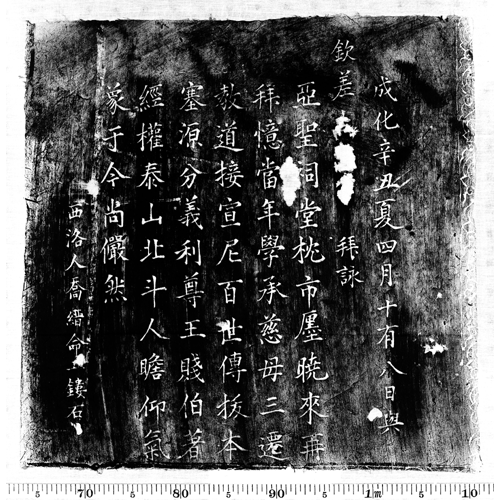 成化辛丑夏四月十有八日與
欽差 拜詠
亞聖祠堂枕市廛曉來再
拜憶當年學承慈母三遷
教道接宣尼百世傳拔本
塞源分義利尊王賤伯著
經權泰山北斗人瞻仰氣
象于今尚儼然
西洛人喬縉命工鏤石
5 70 5 80 5 90 5 1m 5 10